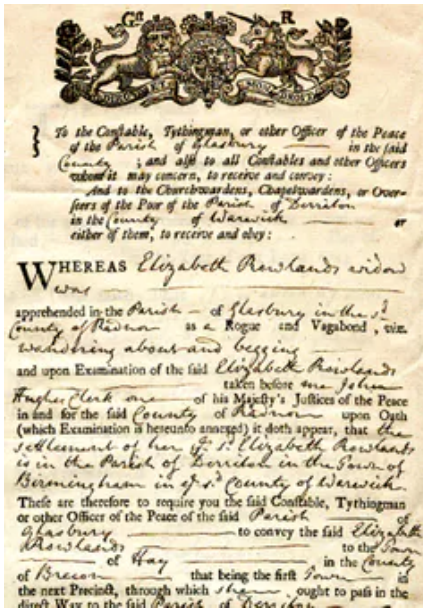 G R
To the Constable, Tythingman, or other Officer of the Peace
of the Parish of Glasbury in the said
County; and also to all Constables and other Officers
whom it may concern, to receive and convey:
And to the Churchwardens, Chapelwardens, or Over-
seers of the Poor of the Parish of Derriton
in the County of Warwick or
either of them, to receive and obey:
WHEREAS Elizabeth Rowlands widow
was
apprehended in the Parish of Glasbury in the sd
County of Radnor as a Rogue and Vagabond, viz.
wandering about and begging
and upon Examination of the said Elizabeth Rowlands
taken before me John
Hughes Clerk one of his Majesty's Justices of the Peace
in and for the said County of Radnor upon Oath
(which Examination is hereunto annexed) it doth appear, that the
settlement of her ye sd Elizabeth Rowlands
is in the Parish of Derriton in the Town of
Birmingham in ye sd County of Warwick
These are therefore to require you the said Constable, Tythingman
or other Officer of the Peace of the said Parish of
Glasbury to convey the said Elizabeth
Rowlands to the Town
of Hay in the County
of Brecon that being the first Town in
the next Precinct, through which she ought to pass in the
direct Way to the said Parish of